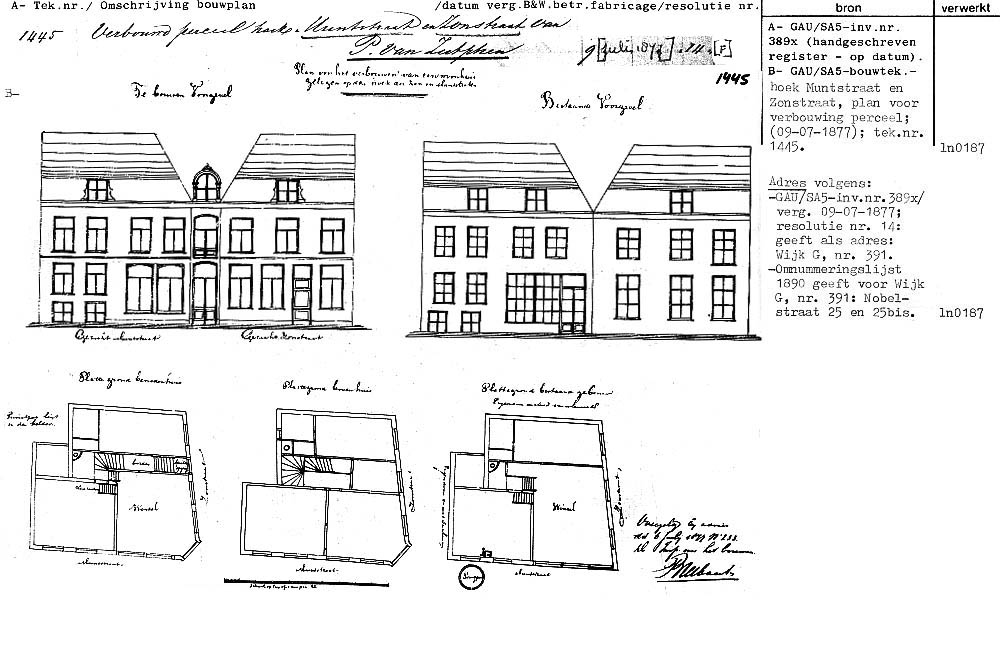 A- Tek.nr./ Omschrijving bouwplan /datum verg.B&W.betr.fabricage/resolutie nr.
bron verwerkt
1445 Verbouwd perceel hoek Muntstraat en Zonstraat van
P. van Zutphen
9 [Juli 1877] .14. [F]
1445
B-
Plan van het verbouwen van een woonhuis
gelegen op den hoek
Te bouwen Voorgevel
Bestaande Voorgevel
A- GAU/SA5-inv.nr.
389x (handgeschreven
register - op datum).
B- GAU/SA5-bouwtek.-
hoek Muntstraat en
Zonstraat, plan voor
verbouwing perceel;
(09-07-1877); tek.nr.
1445. ln0187
Adres volgens:
-GAU/SA5-inv.nr.389x/
verg. 09-07-1877;
resolutie nr. 14:
geeft als adres:
Wijk G, nr. 391.
-Omnummeringslijst
1890 geeft voor Wijk
G, nr. 391: Nobel-
straat 25 en 25bis. ln0187
Gezicht Muntstraat
Gezicht Zonstraat
Plattegrond benedenhuis
Plattegrond bovenhuis
Plattegrond bestaand gebouw
Winkel
Winkel
Zonstraat
Zonstraat
Zonstraat
Muntstraat
Muntstraat
Muntstraat